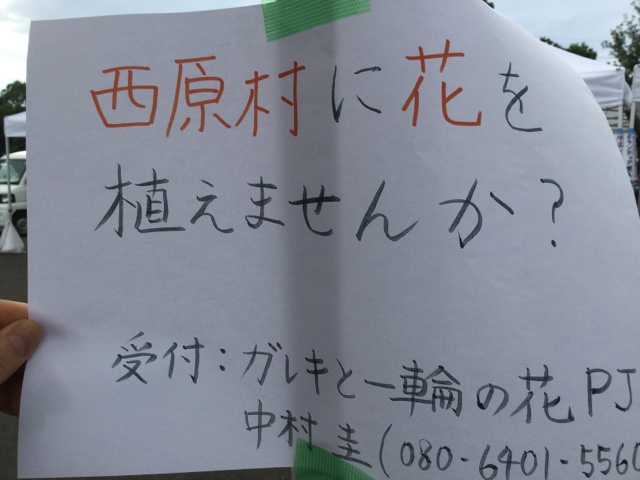 西原村に花を
植えませんか?
受付:ガレキと一輪の花PJ
中村 圭(080-6401-5560